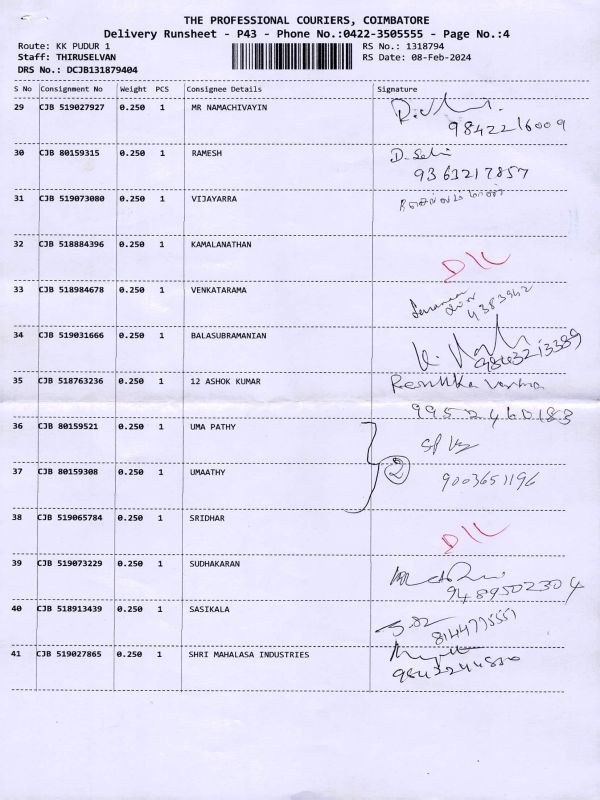 THE PROFESSIONAL COURIERS, COIMBATORE
Delivery Runsheet - P43 - Phone No.:0422-3505555 - Page No.:4
Route: KK PUDUR 1 RS No.: 1318794
Staff: THIRUSELVAN RS Date: 08-Feb-2024
DRS No.: DCJB131879404
S No Consignment No Weight PCS Consignee Details Signature
29 CJB 519027927 0.250 1 MR NAMACHIVAYIN
9842216009
30 CJB 80159315 0.250 1 RAMESH D. Selvi
9363217857
31 CJB 519073080 0.250 1 VIJAYARRA
32 CJB 518884396 0.250 1 KAMALANATHAN
33 CJB 518984678 0.250 1 VENKATARAMA
34 CJB 519031666 0.250 1 BALASUBRAMANIAN
9843213389
35 CJB 518763236 0.250 1 12 ASHOK KUMAR
9952460183
36 CJB 80159521 0.250 1 UMA PATHY
2
37 CJB 80159308 0.250 1 UMAATHY 9003651196
38 CJB 519065784 0.250 1 SRIDHAR
39 CJB 519073229 0.250 1 SUDHAKARAN
9489502304
40 CJB 518913439 0.250 1 SASIKALA
41 CJB 519027865 0.250 1 SHRI MAHALASA INDUSTRIES